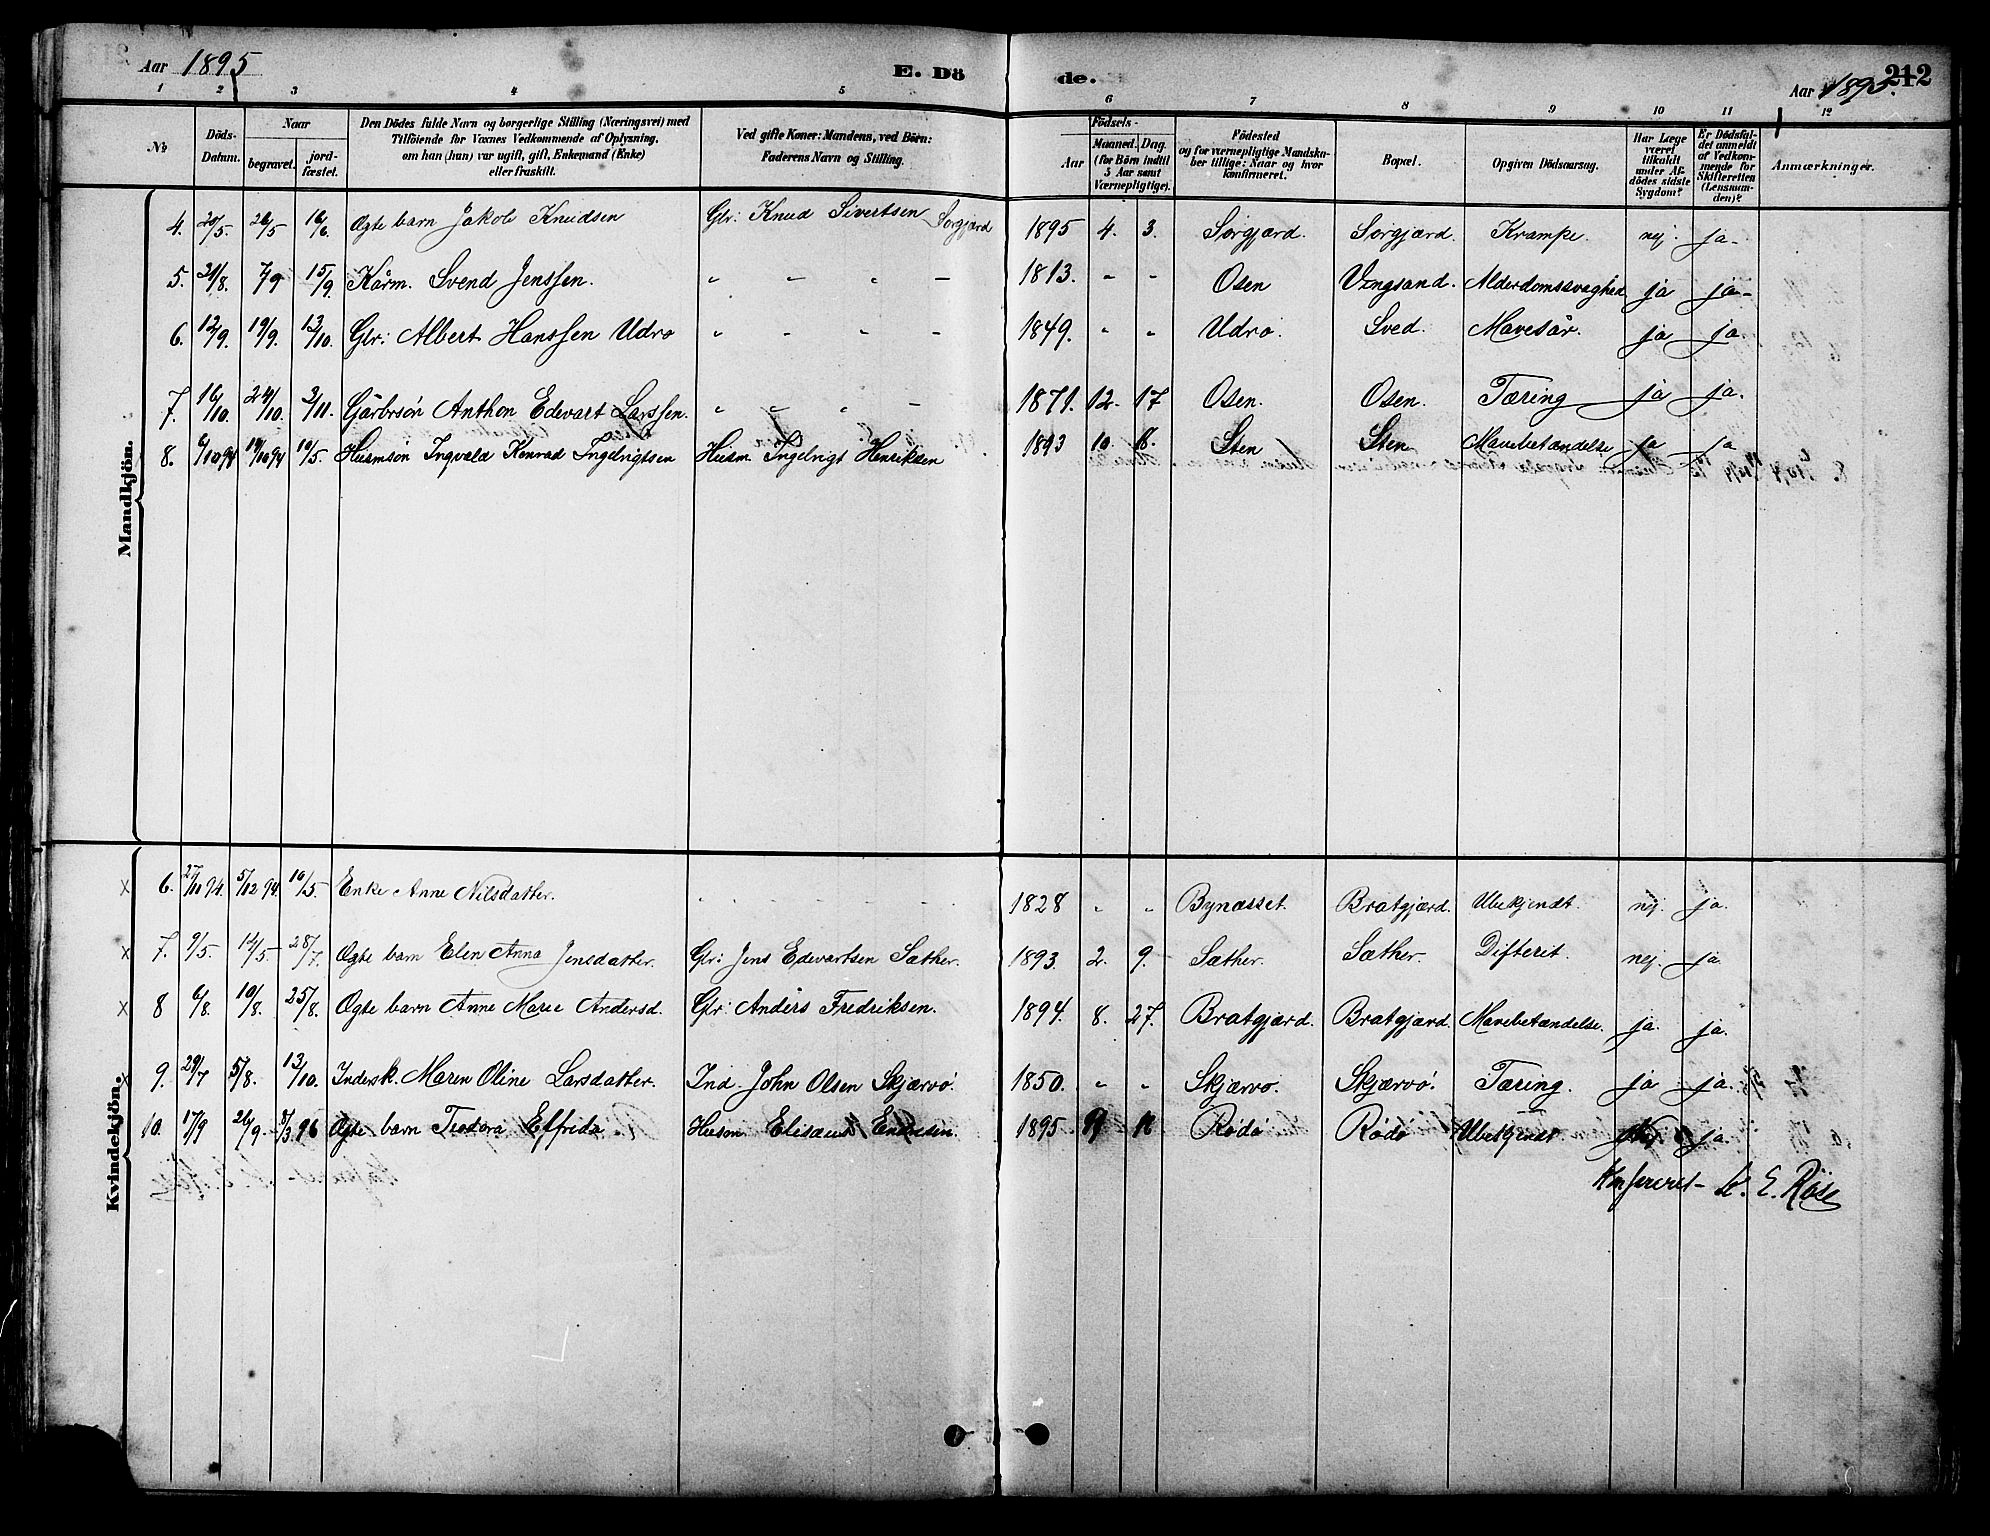 Aar 1895 E. Dö de. Aar 1895. 212
1 2 3 4 5 6 7 8 9 10 11 12
No Döds-Datum. Naar begravet. jord-fæstet. Den Dödes fulde Navn og borgerlige Stilling (Næringsvei) med Tilföiende for Voxnes Vedkommende af Oplysning, om han (hun) var ugift, gift, Enkemand (Enke) eller fraskilt. Ved gifte Koner: Mandens, ved Börn: Faderens Navn og Stilling. Födsels- Aar Maaned. Dag. (for Börn indtil 5 Aar samt Værnepligtige). Födested og for værnepligtige Mandska-ber tillige: Naar og hvor konfirmeret. Bopæl. Opgiven Dödsaarsag. Har Læge været tilkaldt under Af-dödes sidste Sygdom? Er Dödsfal-det anmeldt af Vedkom-mende for Skifteretten (Lensman-den)? Anmærkninger.
Mandkjön.
4. 20/5. 26/5 16/6. Ægte barn Jakob Knudsen Gbr: Knud Sivertsen Sorgjærd 1895 4. 3. Sorgjærd. Sorgjærd. Krampe. nej. ja.
5. 21/8. 7/9 15/9. Kårm. Svend Jenssen. " - " - 1813. - - Osen Vingsand. Alderdomssvaghed ja ja
6. 12/9. 19/9. 13/10. Gbr: Albert Hanssen Udrø " - " - 1849. " " Udrø. Sved. Mavesår. ja ja
7. 16/10. 24/10. 2/11. Gårbrsøn Anthon Edevart Larssen. " - " - 1871. 12. 17 Osen. Osen. Tæring ja ja.
8. 6/10 94 19/10 94 10/5. Husmsøn Ingvald Konrad Ingebrigtsen Husm. Ingebrigt Henriksen 1893 10. 8. Sten Sten Mavebetændelse ja ja
Kvindekjön.
x 6. 27/10 94. 5/12 94. 10/5. Enke Anne Nilsdatter. 1828 " " Bynæsset. Bratgjærd. Ubekjendt. nej. ja.
x 7. 9/5. 12/5. 28/7. Ægte barn Elen Anna Jensdatter. Gbr: Jens Edevartsen Sæther. 1893. 2. 9. Sæther. Sæther. Difterit. nej. ja.
x 8 6/8. 10/8. 25/8. Ægte barn Anne Marie Andersd. Gbr: Anders Fredriksen. 1894. 8. 27. Bratgjærd. Bratgjærd. Mavebetændelse. ja. ja.
x 9. 29/7 5/8. 13/10. Indersk. Maren Oline Larsdatter. Ind. John Olsen Skjærvø. 1850. " " Skjærvø. Skjærvø. Tæring. ja ja.
10. 17/9 26/9. 8/3 96 Ægte barn Teodora Elfrida Husm Eliseus 1895 Rødø Rødø Ubekjendt ja.
Konfereret - E. Röse